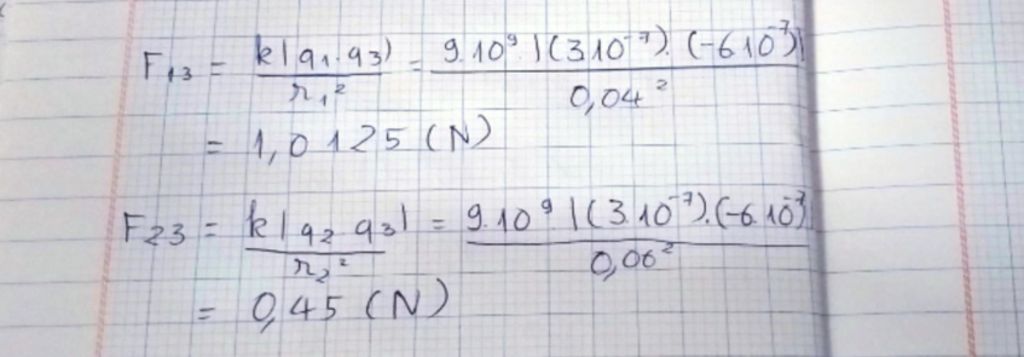 F₁₃ = k|q₁.q₃| / r₁² = 9.10⁹.|(3.10⁻⁷).(-6.10⁻⁷)| / 0,04²
= 1,0125 (N)
F₂₃ = k|q₂ q₃| / r₂² = 9.10⁹.|(3.10⁻⁷).(-6.10⁻⁷)| / 0,06²
= 0,45 (N)